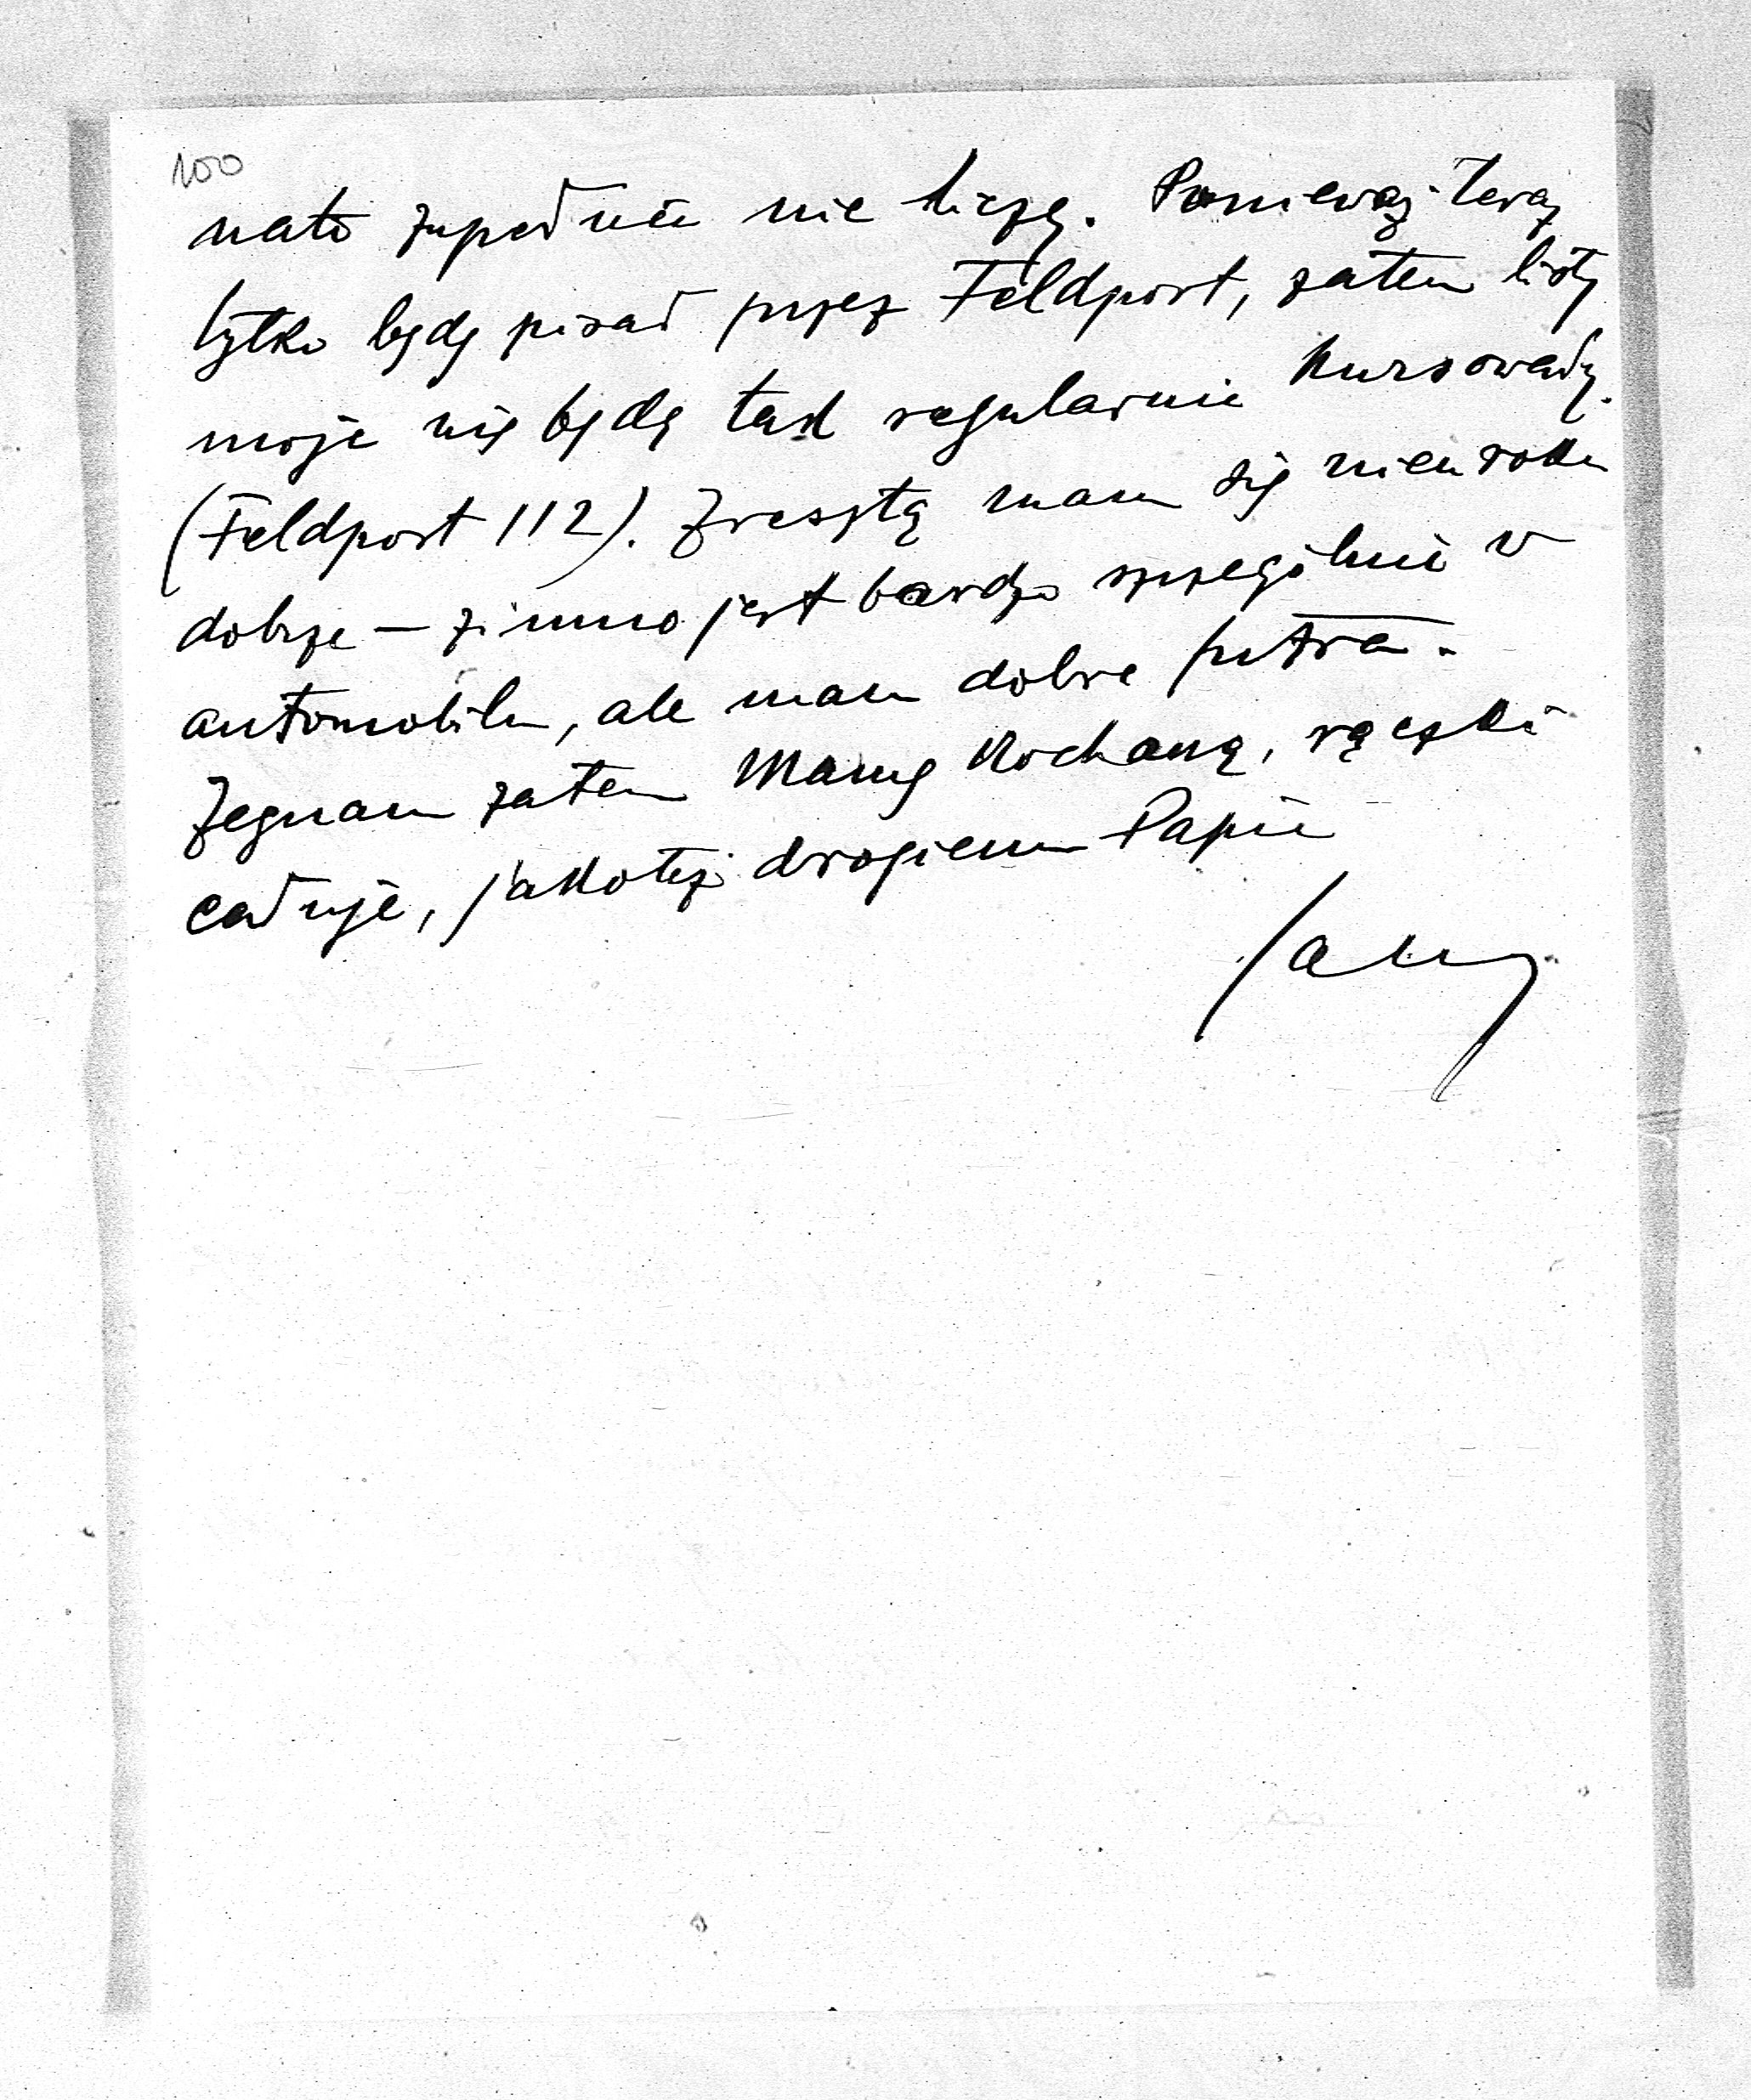 100
nato zupełnie nie liczę. Ponieważ teraz
tylko będę pisał przez Feldpost, zatem listy
moje nie będą tak regularnie kursowały.
(Feldpost 112). Zresztą mam się nieuroku
dobrze — zimno jest bardzo szczególnie w
automobilu, ale mam dobre futra.
Żegnam zatem Mamę kochaną, rączki
całuję, jakoteż drogiemu Papie